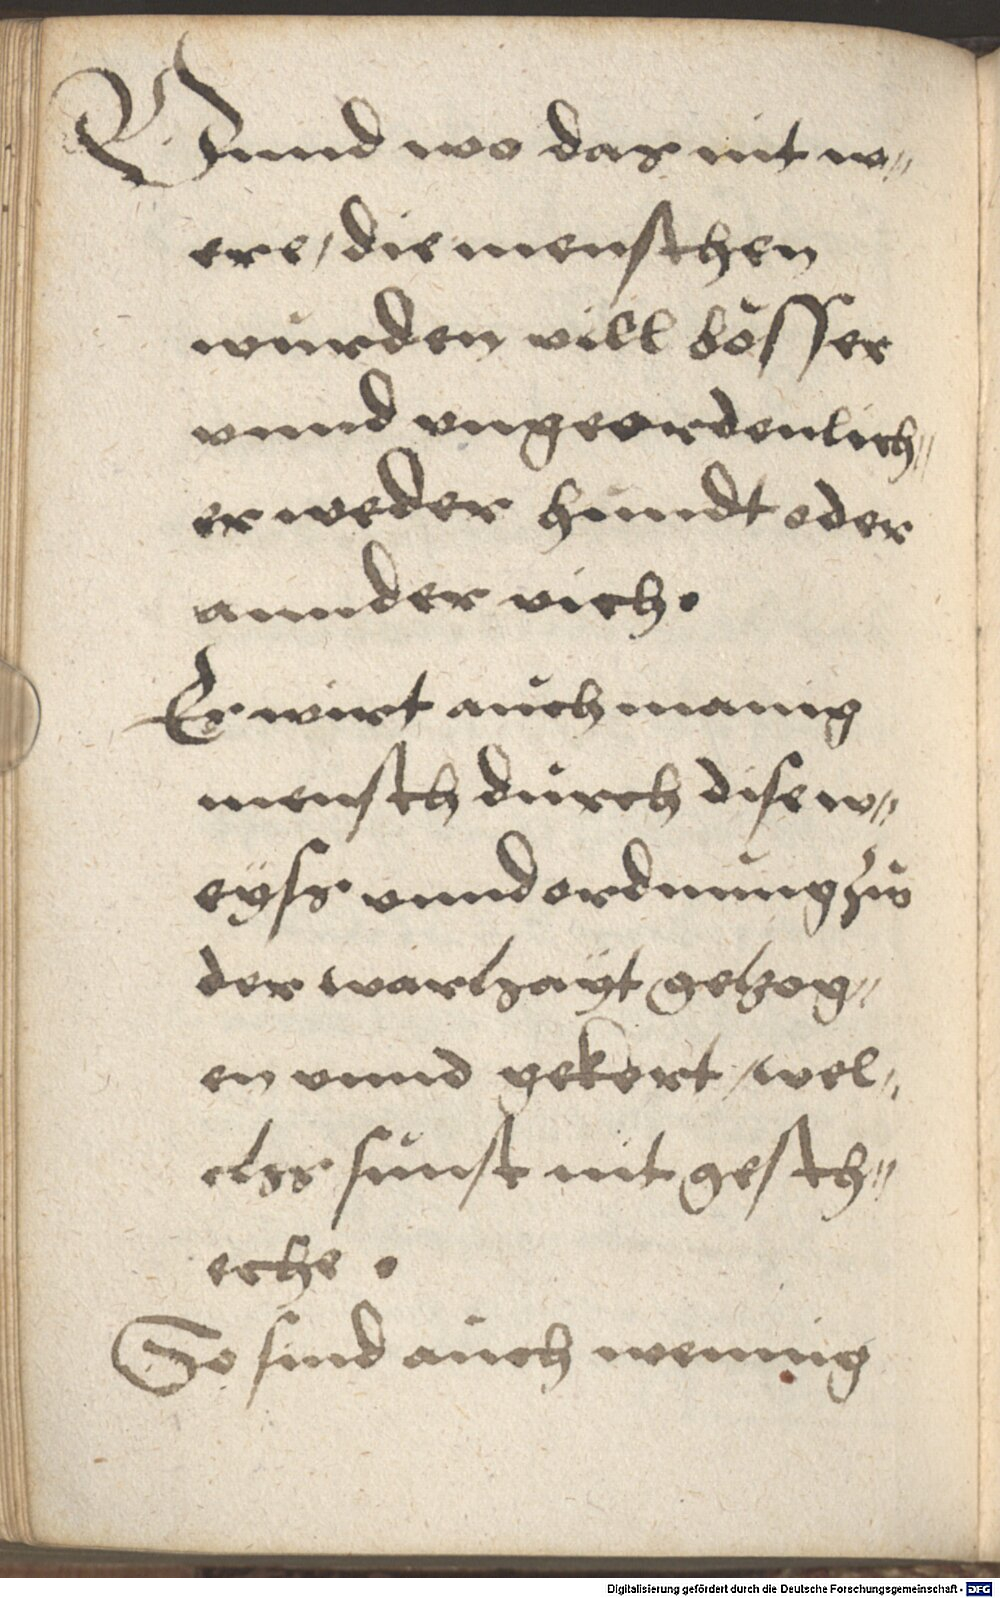 Vnnd wo das nit w//
ere / die menschen
wurden vill bösser
vnnd vngeordenlich//
er weder hundt oder
annder viech.
Er wirt auch manig
mensch durch dise w//
eyss vnnd ordnung zu
der warhayt gezog//
en vnnd gekert / wel//
chs sunst nit gesch//
eche.
So sind auch wennig
Digitalisierung gefördert durch die Deutsche Forschungsgemeinschaft - DFG